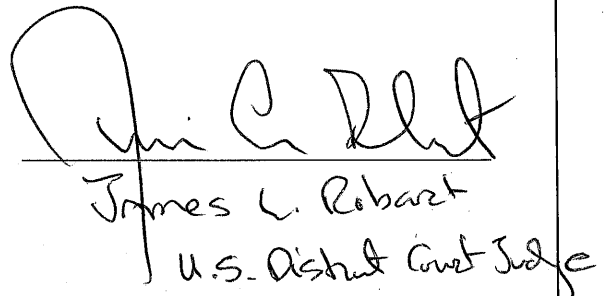 James L. Robart
U.S. District Court Judge